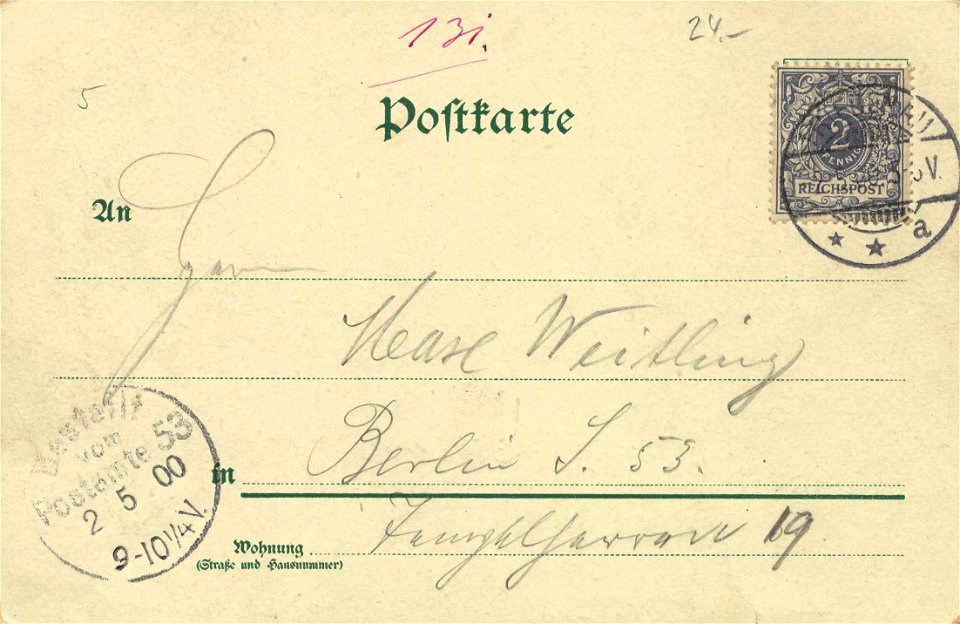 13i.
24.-
5
Postkarte
2
PFENNIG
REICHSPOST
V.
* * a
An
Herrn
Weitling
Berlin S. 53.
in
Wohnung
(Straße und Hausnummer)
19
Bestellt
vom
Postamte 53
2 5 00
9-10 1/4 V.